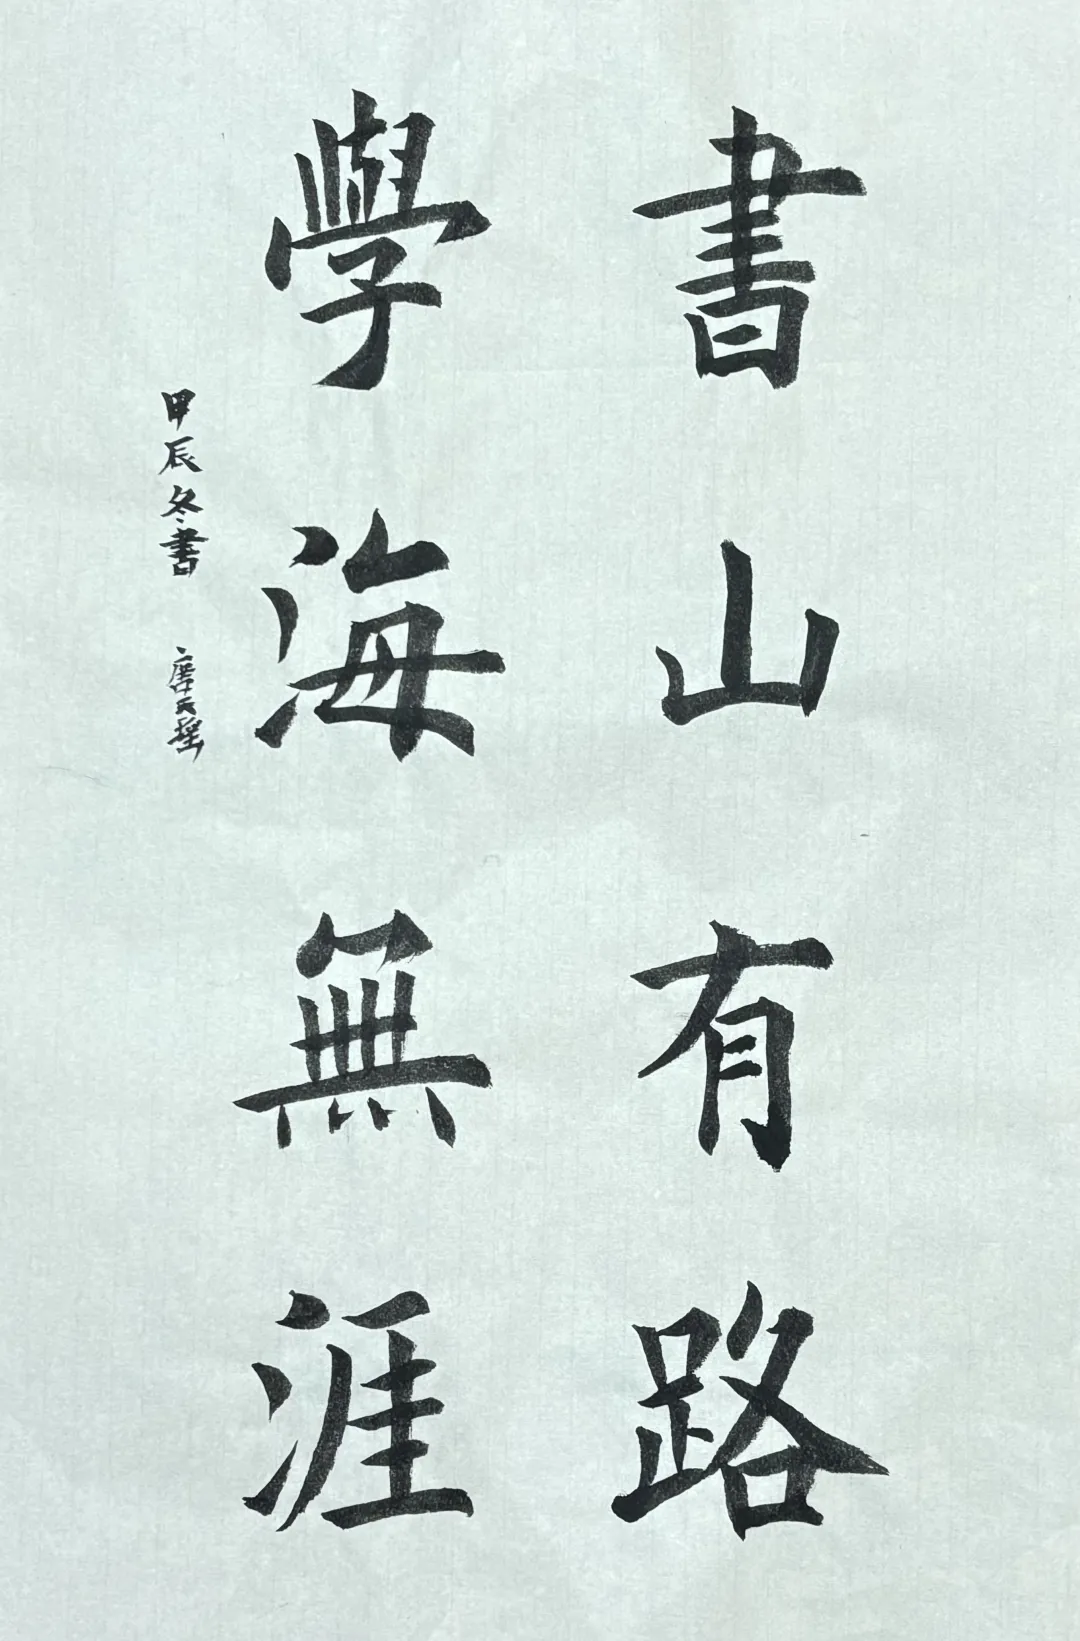 書山有路
學海無涯
甲辰冬書 唐天瑤